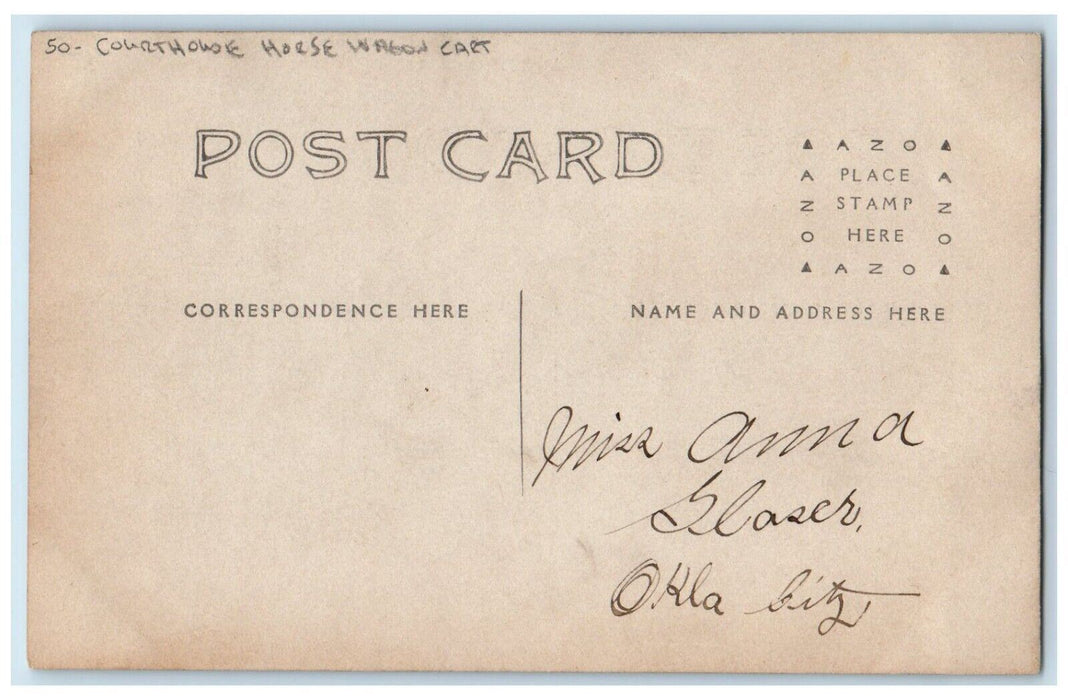 50- COURTHOUSE HORSE WAGON CART
POST CARD
▲ A Z O ▲
A PLACE A
Z STAMP Z
O HERE O
▲ A Z O ▲
CORRESPONDENCE HERE
NAME AND ADDRESS HERE
Miss Anna
Glaser,
Okla City,